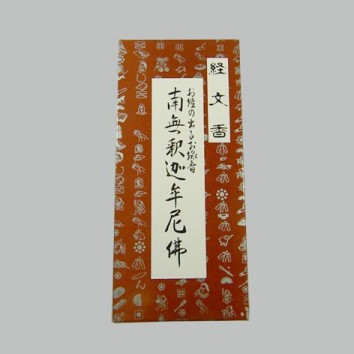 経文香
お経の出るお線香
南無釈迦牟尼佛